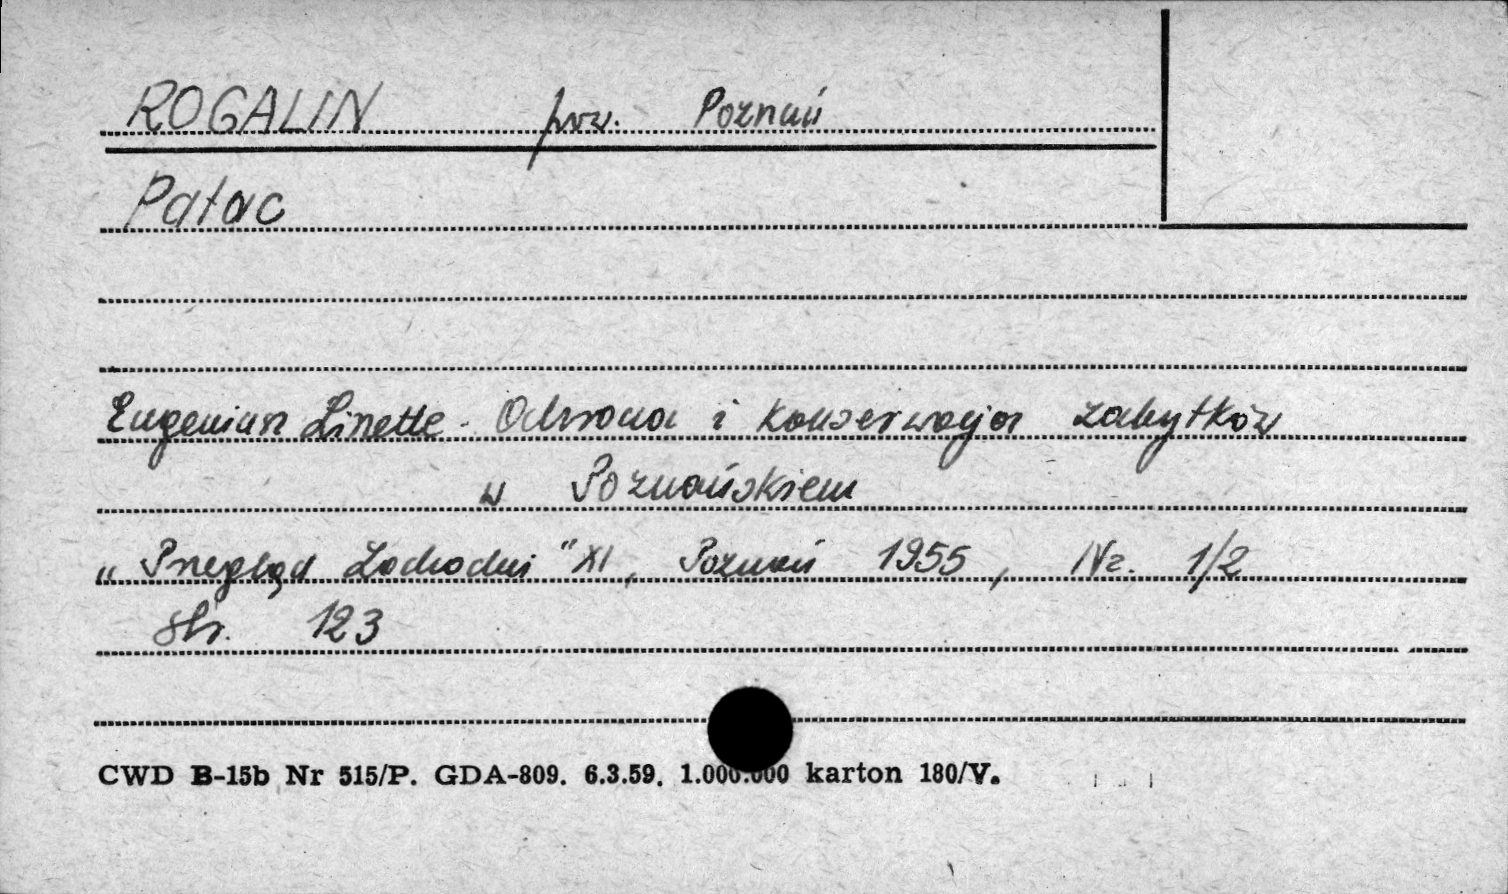 ROGALIN pow. Poznań
Pałac
Eugeniusz Linette - Ochrona i konserwacja zabytków
w Poznańskiem
„Przegląd Zachodni" XI, Poznań 1955, Nr. 1/2
str. 123
CWD B-15b Nr 515/P. GDA-809. 6.3.59. 1.000.000 karton 180/V.